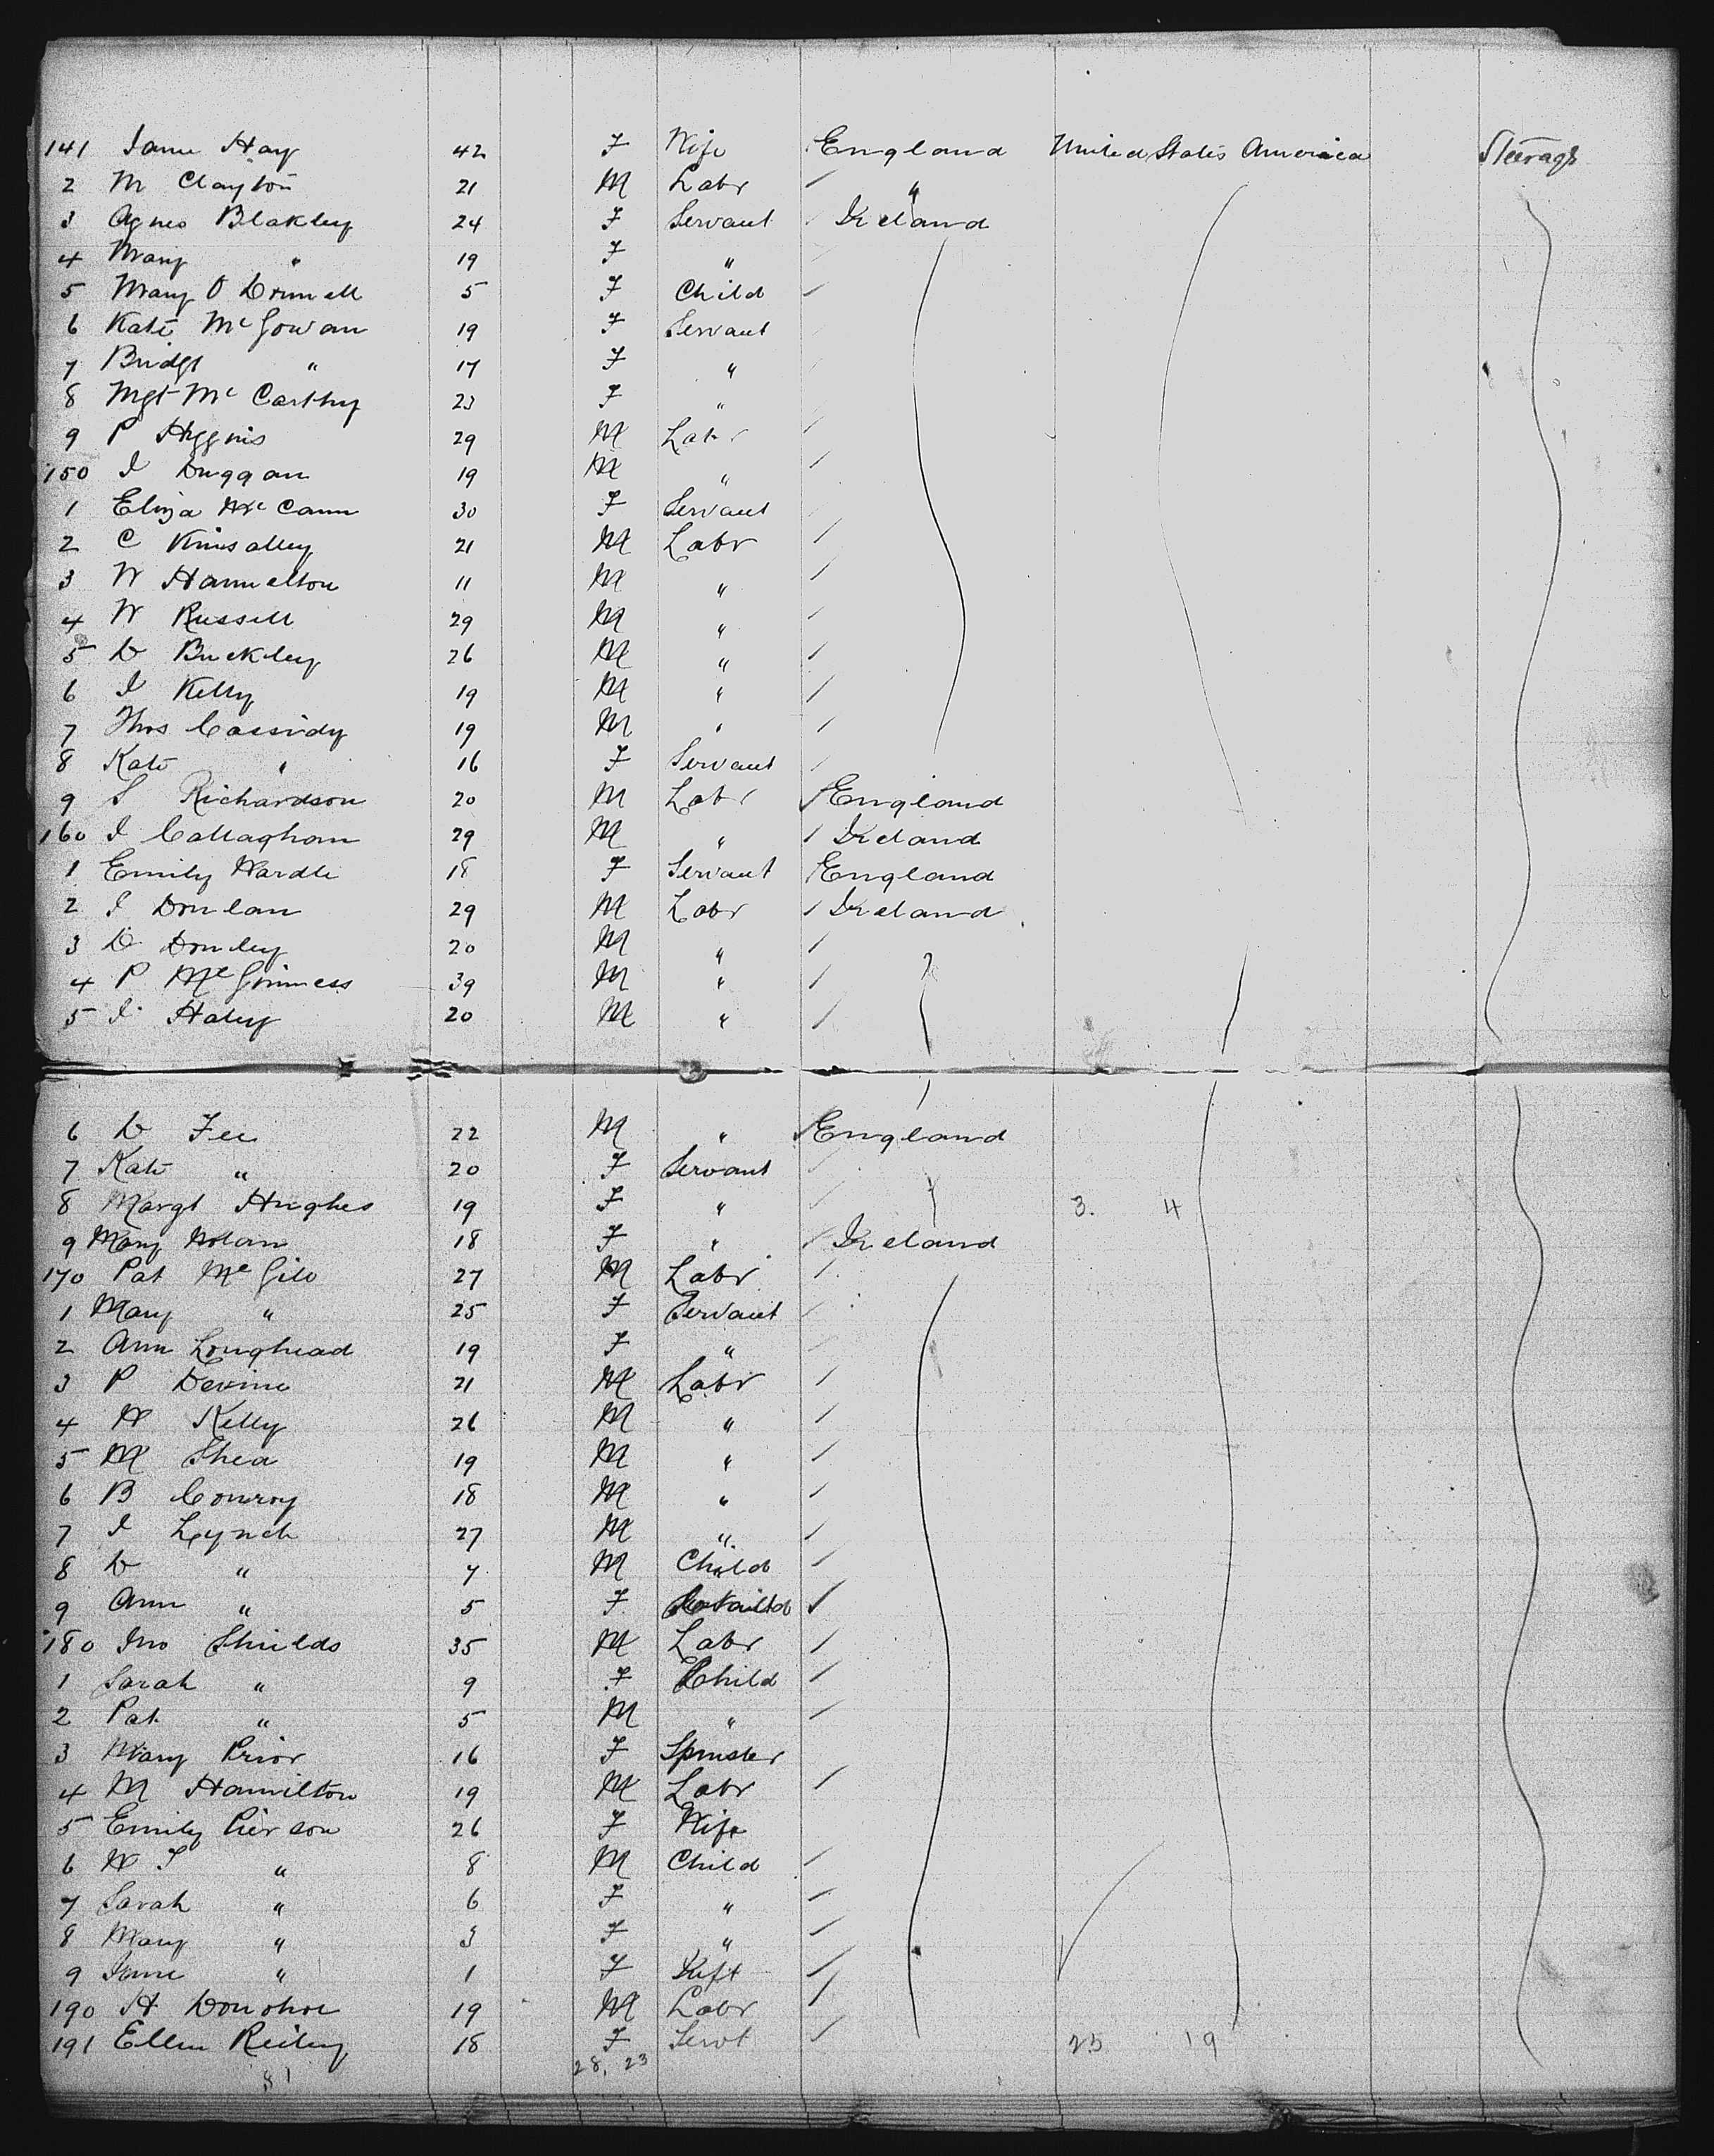 141 Jane Hay 42 F Wife England United States America Steerage
2 M Clayton 21 M Labr "
3 Agnes Blakley 24 F Servant Ireland
4 Mary " 19 F "
5 Mary O Donnell 5 F Child
6 Kate McGowan 19 F Servant
7 Bridgt " 17 F "
8 Mgt McCarthy 23 F "
9 P Higgins 29 M Labr
150 J Duggan 19 M "
1 Eliza McCann 30 F Servant
2 C Kinsalley 21 M Labr
3 W Hammelton 11 M "
4 W Russell 29 M "
5 D Buckley 26 M "
6 J Kelly 19 M "
7 Thos Cassidy 19 M "
8 Kate " 16 F Servant
9 S Richardson 20 M Labr England
160 J Callaghan 29 M " Ireland
1 Emily Wardle 18 F Servant England
2 J Donlan 29 M Labr Ireland
3 D Donley 20 M "
4 P McGinness 39 M "
5 J Haley 20 M "
6 D Fee 22 M " England
7 Kate " 20 F Servant
8 Margt Hughes 19 F " 3. 4
9 Mary Nolan 18 F " Ireland
170 Pat McGilo 27 M Labr
1 Mary " 25 F Servant
2 Ann Loughead 19 F "
3 P Devine 21 M Labr
4 W Kelly 26 M "
5 M Shea 19 M "
6 B Conroy 18 M "
7 J Lynch 27 M "
8 D " 7 M Child
9 Ann " 5 F
180 Jno Shields 35 M Labr
1 Sarah " 9 F Child
2 Pat " 5 M "
3 Mary Prior 16 F Spinster
4 M Hamilton 19 M Labr
5 Emily Pierson 26 F Wife
6 W J " 8 M Child
7 Sarah " 6 F "
8 Mary " 3 F "
9 Jane " 1 F
190 H Donohoe 19 M Labr
191 Ellen Reiley 18 F Servt 25 19
81 28, 23